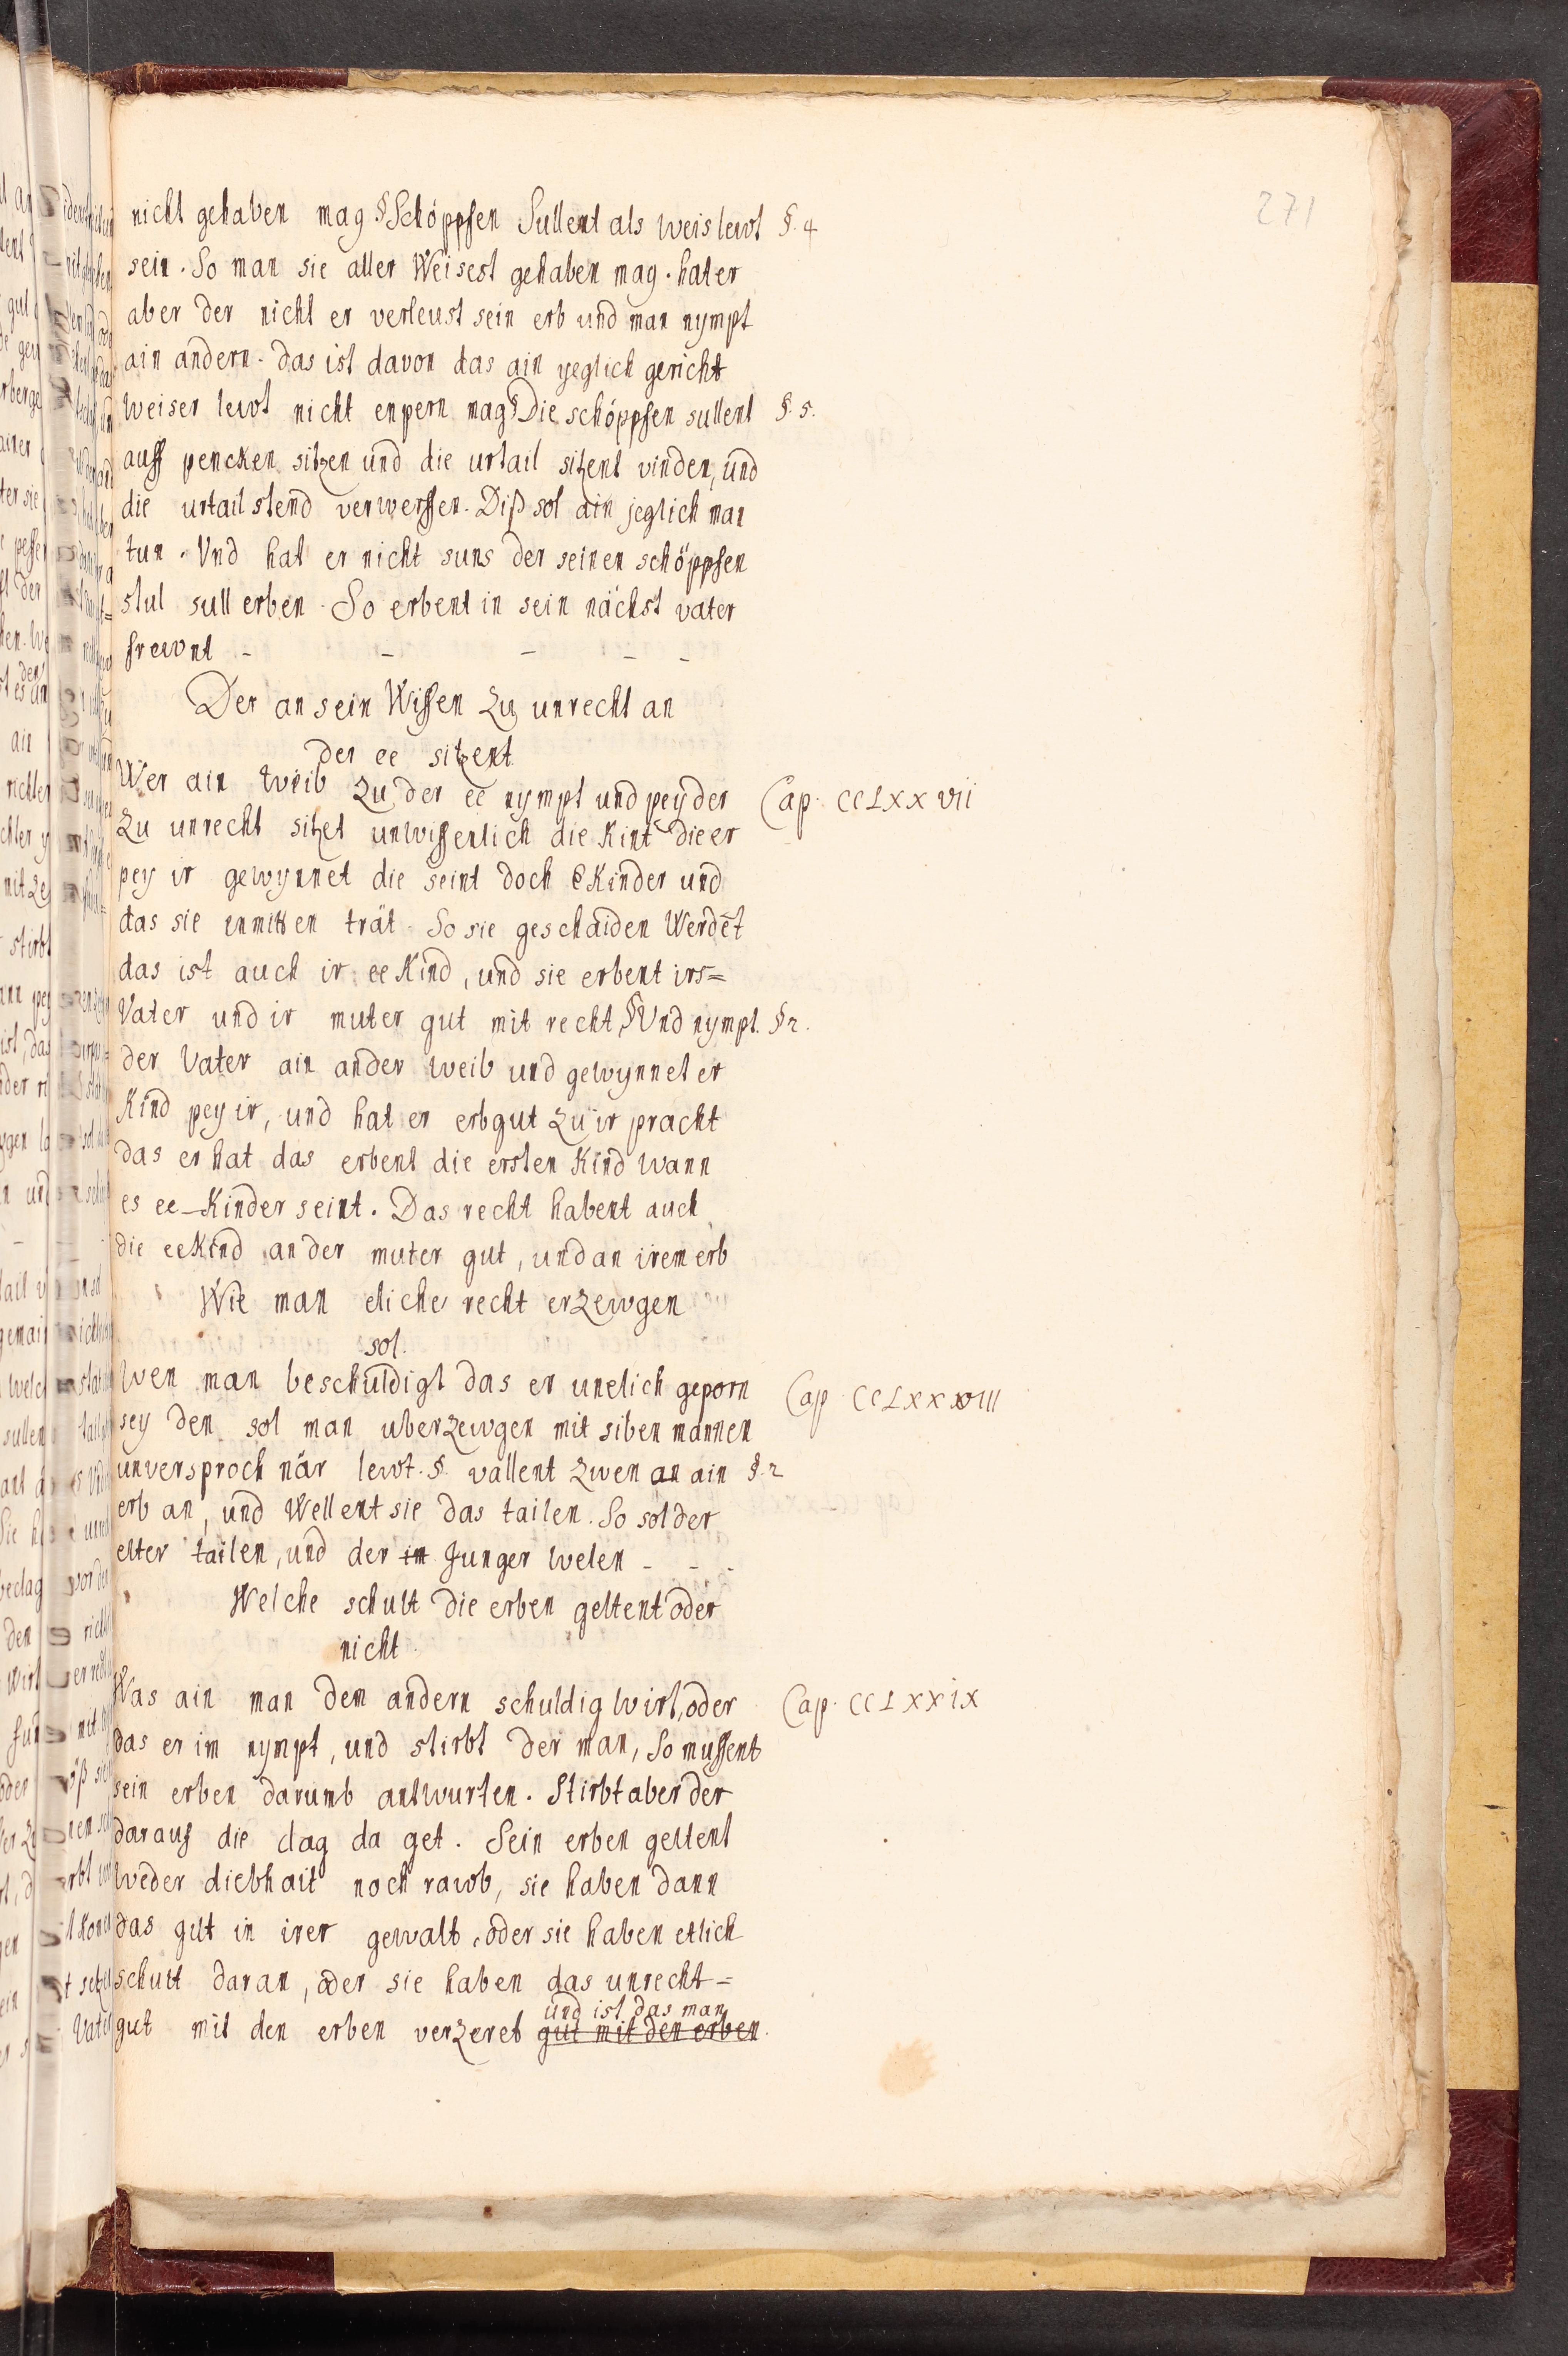 271
nicht gehaben mag § Schöppfen Sullent als weis lewt §. 4
sein. So man sie aller Weisest gehaben mag. hat er
aber der nicht er verleust sein erb und man nympt
ain andern. das ist davon das ain yeglich gericht
weiser lewt nicht enpern mag § Die schöppfen sullent §. 5.
auff pencken sitzen und die urtail sitzent vinden, und
die urtail stend verwerffen. Diß sol ain jeglich man
tun. Vnd hat er nicht suns der seinen schöppfen
stul sull erben. So erbent in sein nächst vater
frewnt - - - - -
Der an sein Wissen zu unrecht an
der ee sitzent
Wer ain weib zu der ee nympt und pey der Cap. CCLXXVII
zu unrecht sitzet unwissenlich die Kint die er
pey ir gewynnet die seint doch eKinder und
das sie enmitten trät. So sie geschaiden Werdēt
das ist auch ir ee Kind, und sie erbent irs=
Vater und ir muter gut mit recht § Und nympt. § 2.
der Vater ain ander weib und gewynnet er
Kind pey ir, und hat er erbgut zu ir pracht
das er hat das erbent die ersten Kind wann
es ee-Kinder seint. Das recht habent auch
die eeKind an der muter gut, und an irem erb
Wie man eliche recht erzewgen
sol.
Wen man beschuldigt das er unelich geporn Cap. CCLXXVIII
sey den sol man uberzewgen mit siben mannen
unversproch när lewt. §. vallent zwen an ain §. 2
erb an, und Wellent sie das tailen. So sol der
elter tailen, und der im Junger welen - - -
Welche schult die erben geltent oder
nicht.
Was ain man dem andern schuldig wirt, oder Cap. CCLXXIX
das er im nympt, und stirbt der man, So mussent
sein erben darumb antwurten. Stirbt aber der
darauf die clag da get. Sein erben geltent
weder diebhait noch rawb, sie haben dann
das gut in irer gewalt, oder sie haben etlich
schult daran, oder sie haben das unrecht=
und ist das man
gut mit den erben verzeret gut mit den erben.